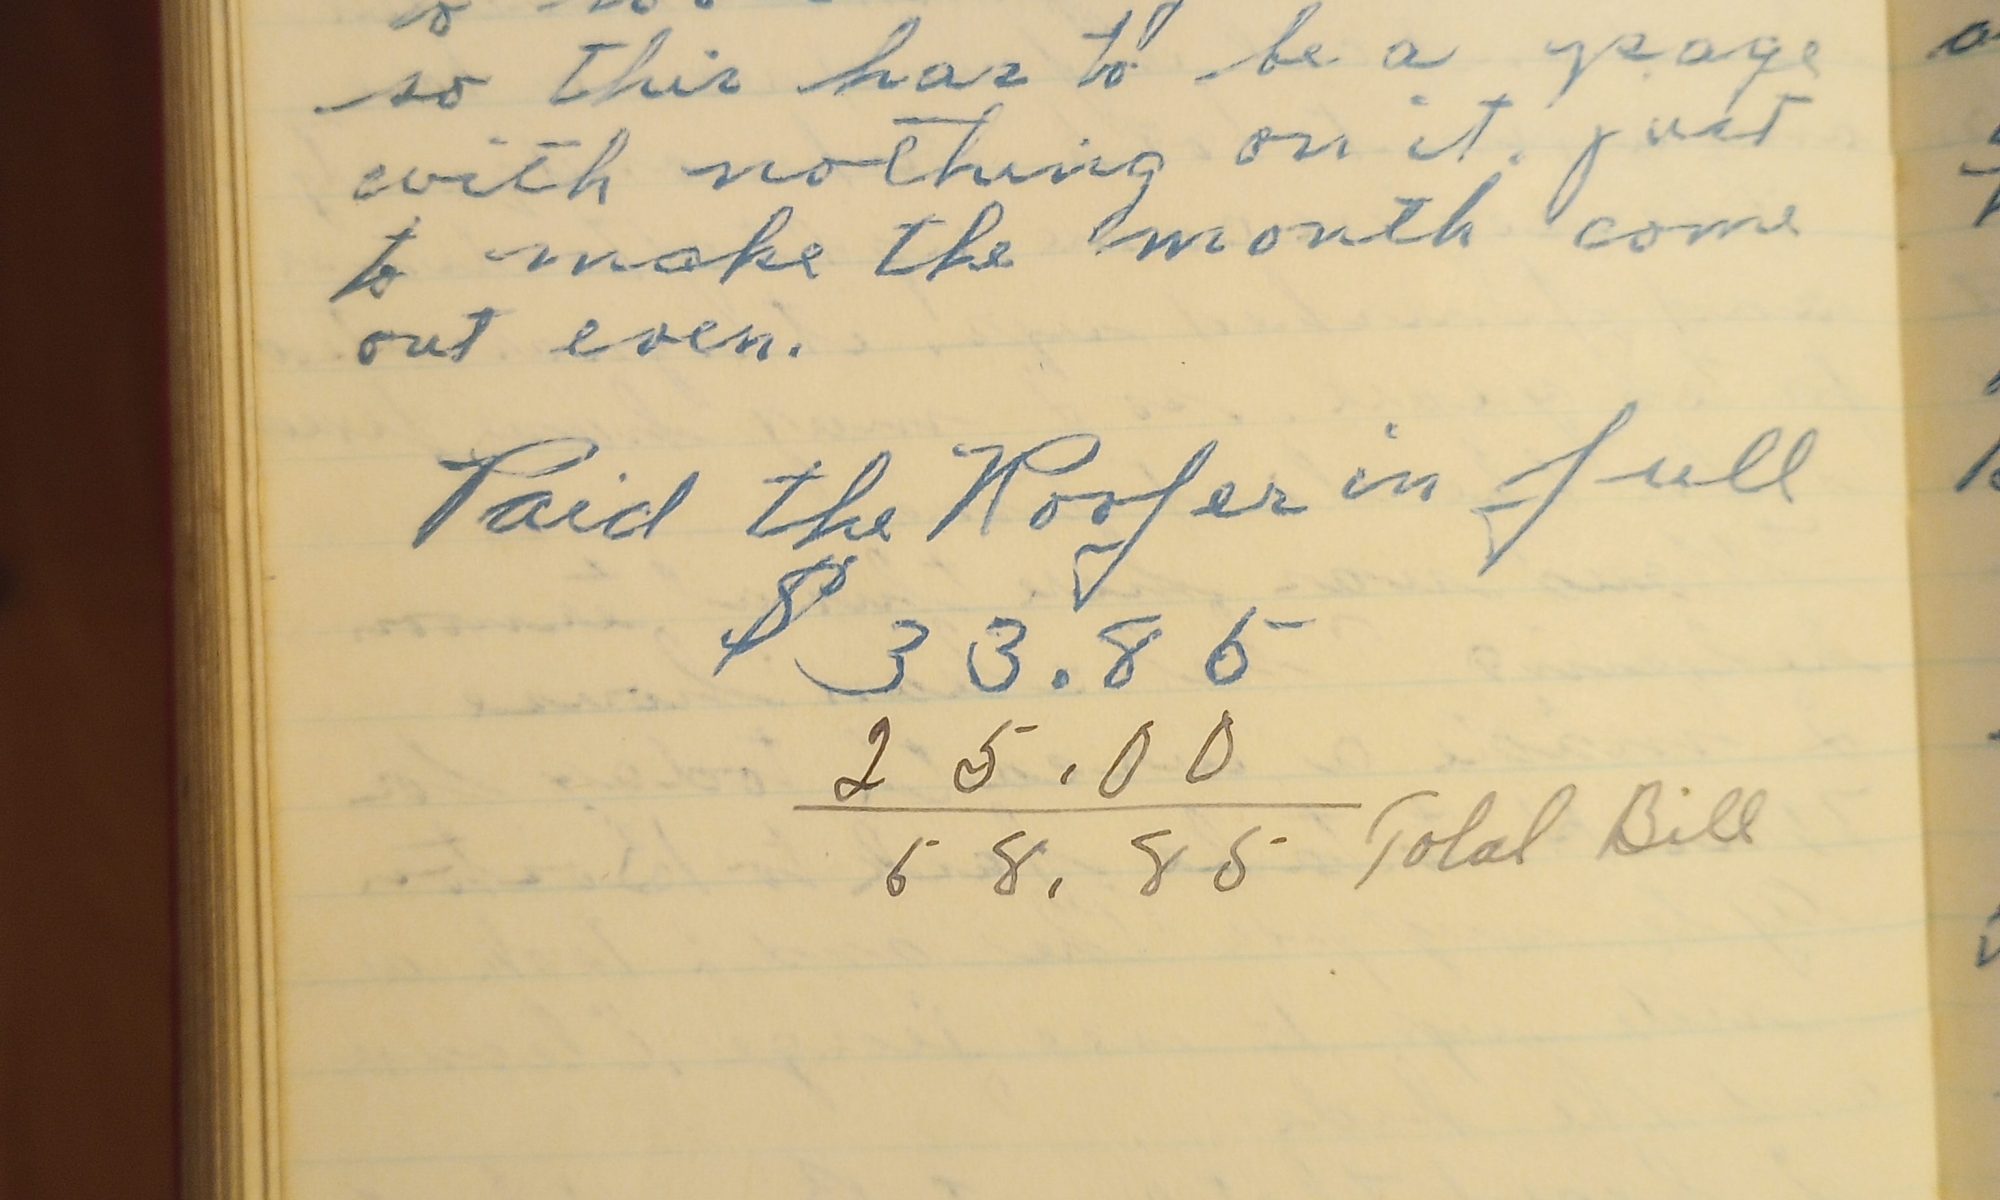 so this has to be a page
with nothing on it, just
to make the month come
out even.
Paid the Roofer in full
$33.85
25.00
58.85 Total Bill